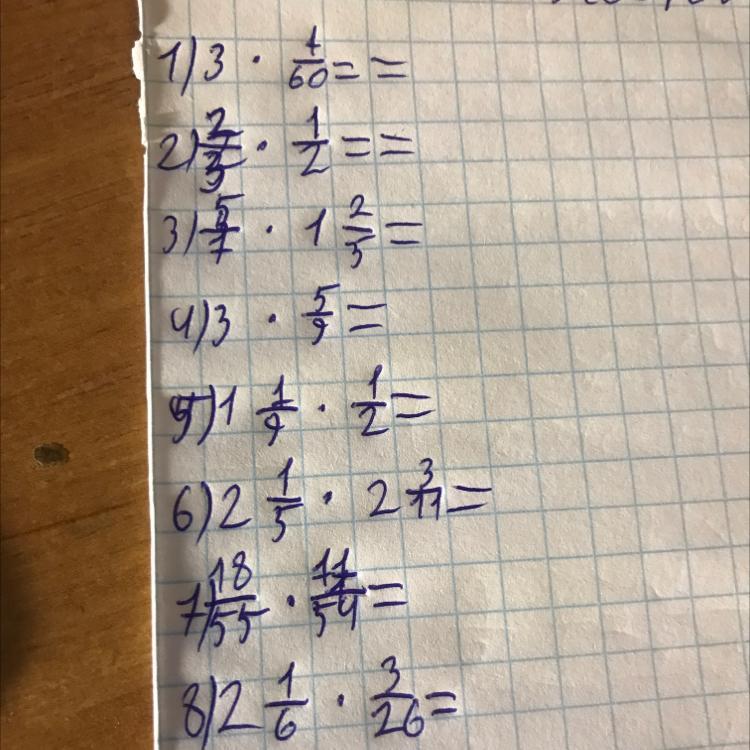 1) 3 · 1/60 = =
2) 2/3 · 1/2 = =
3) 5/7 · 1 2/5 =
4) 3 · 5/9 =
5) 1 1/9 · 1/2 =
6) 2 1/5 · 2 3/11 =
7) 18/55 · 11/54 =
8) 2 1/6 · 3/26 =